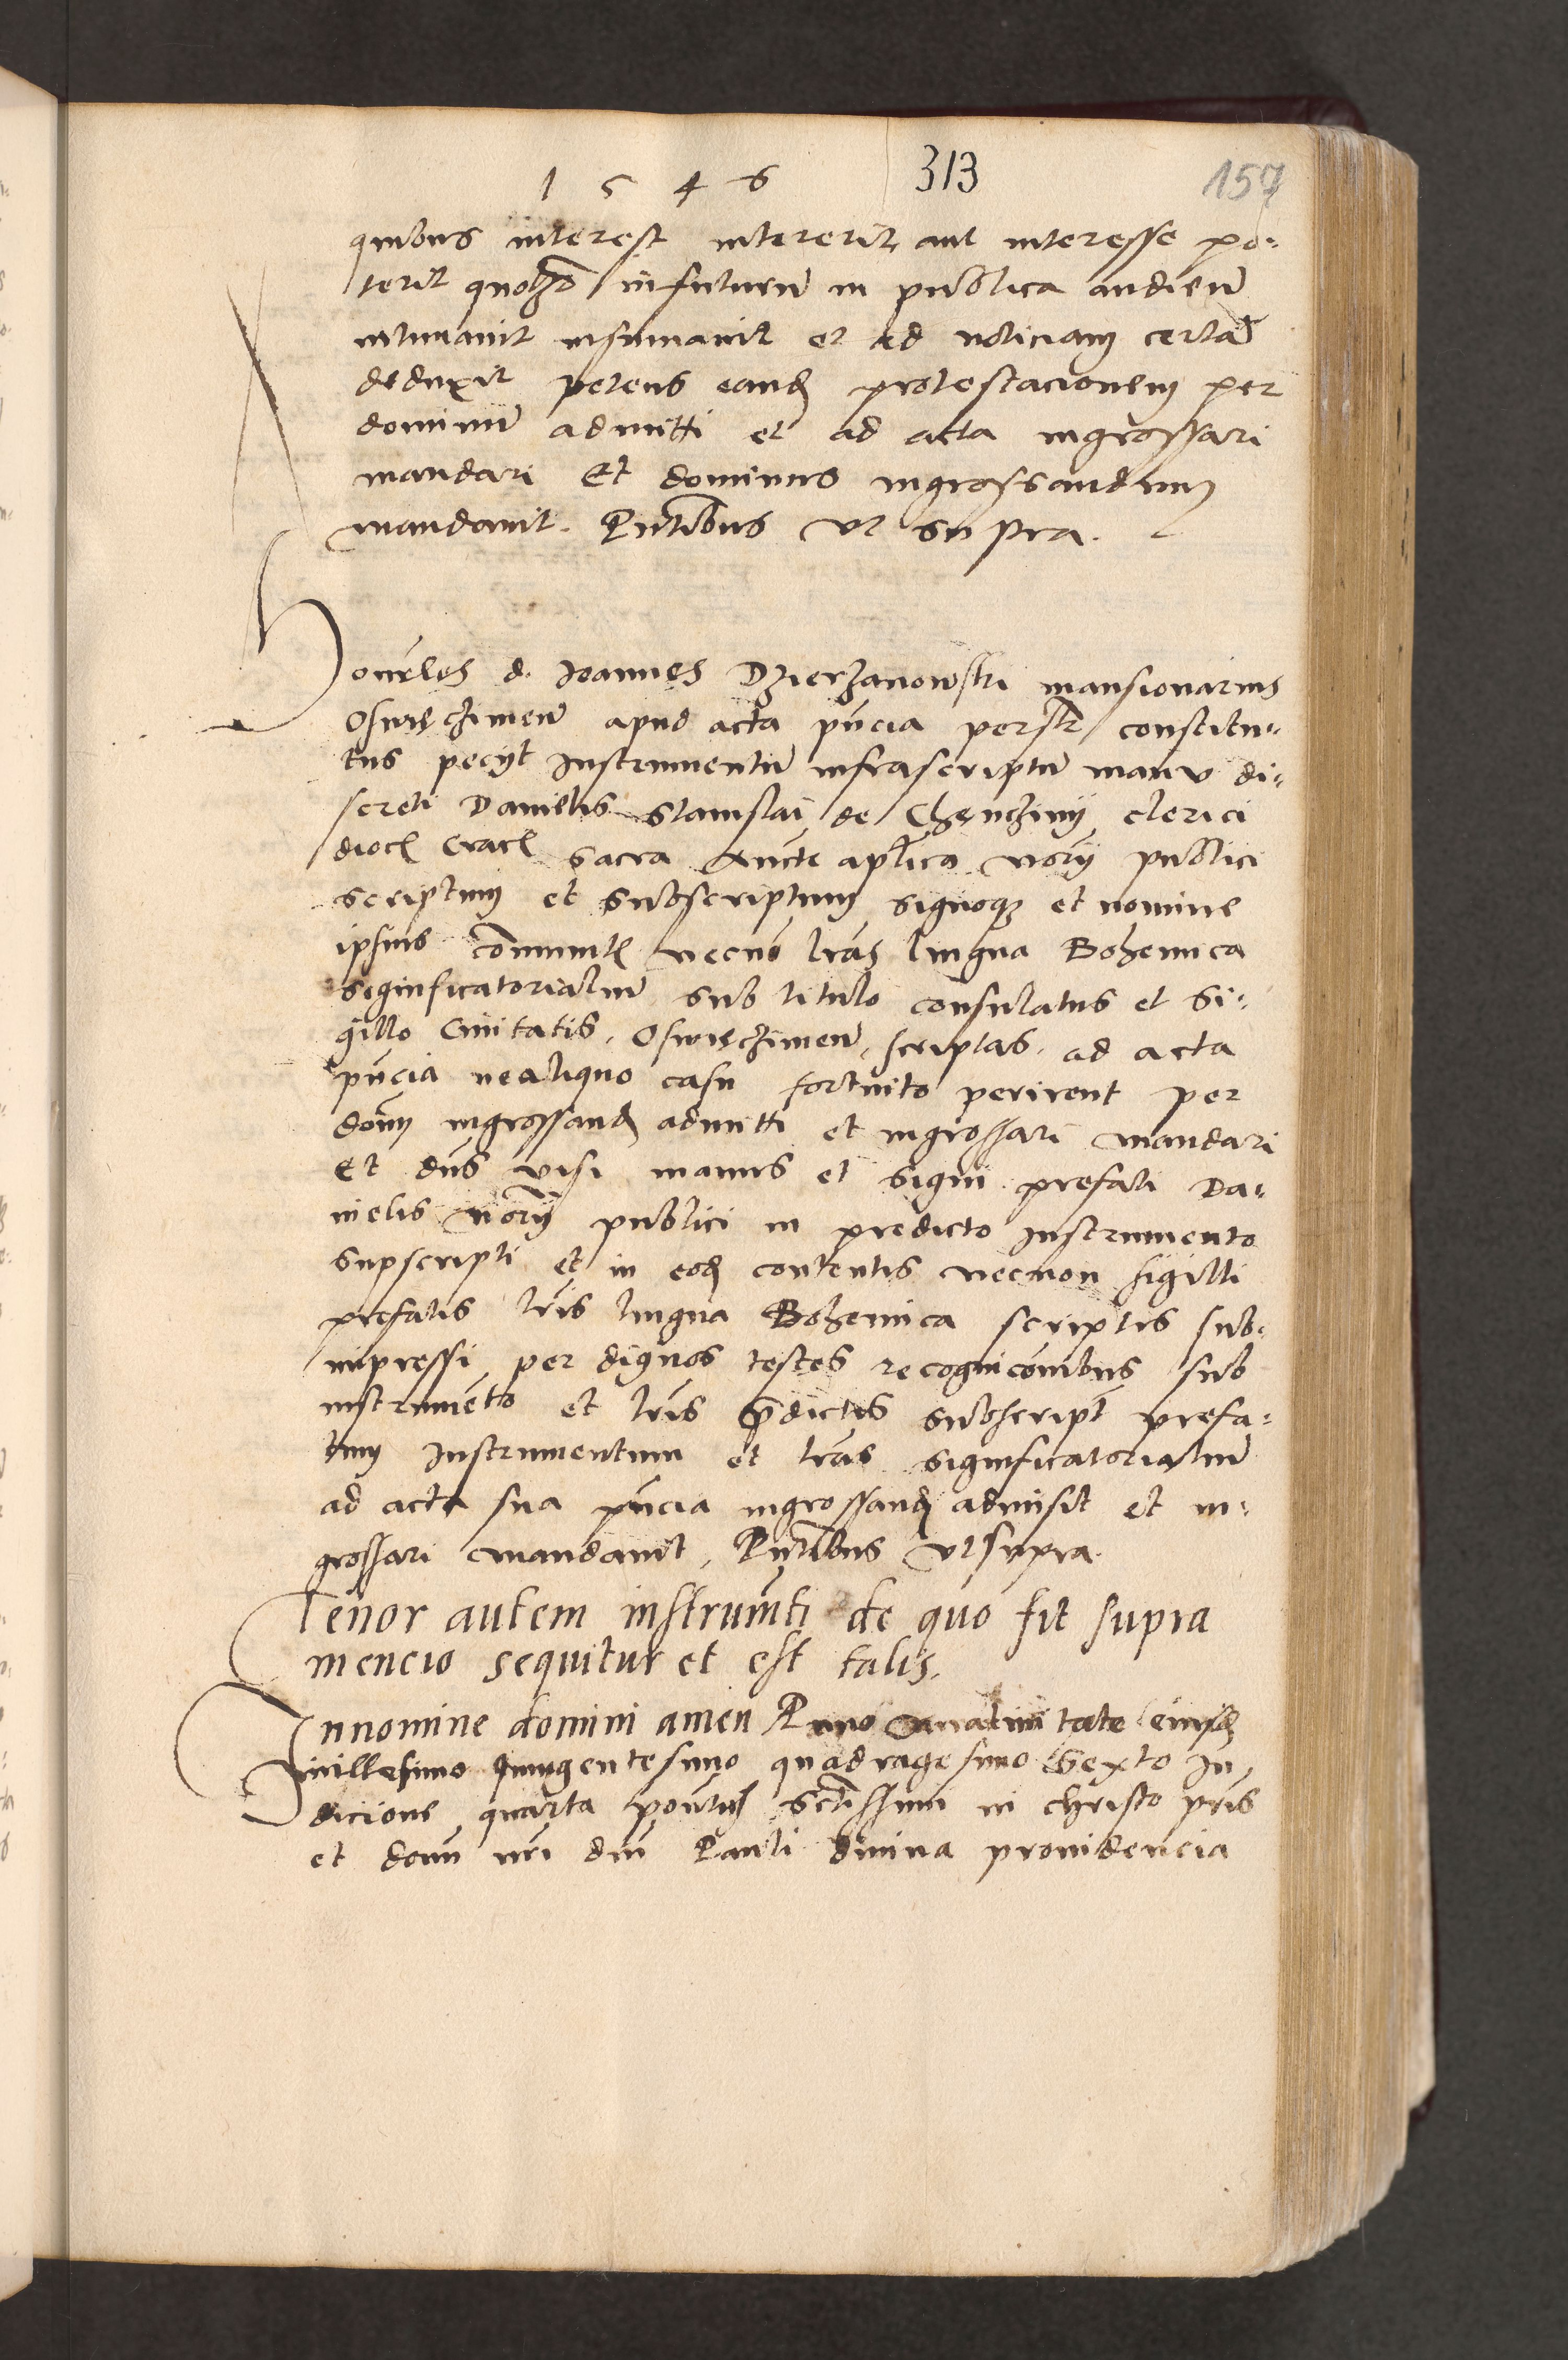 1 5 4 6 313 157
quibus interest intererit aut interesse po-
terit quoħ infuturū in publica audieñ
intimavit insinuavit et ad noticiam certā
deduxit petens eand protestacionem per
dominū admitti et ad acta ingrossari
mandari Et dominus ingrossandum
mandavit. Pñtibus vt supra.
Honorles d. Joannes Dzierzanowski mansionarius
Oswieczimeñ apud acta pñcia persłr constitu-
tus pecyt Instrumentū infrascriptū manu di-
screti Danielis Stanislai de Chenchiny clerici
dioc Crac sacra aucte aplica nory publici
scriptum et subscriptum signoq et nomine
ipsius cōmunit necno lras lingua Bohemica
significatorialiū sub titulo consulatus et si-
gillo Civitatis Oswieczimeñ, scriptas ad acta
pñcia ne aliquo casu fortuito perirent per
dōm ingrossand admitti et ingrossari mandari
Et dñs visi manus et signi prefati Da-
nielis nory publici in predicto instrumento
supscripti et in eod contentis necnon sigilli
prefatis lris lingua Bohemica scriptis sub-
impressi per dignos testes recognicōnibus sub
instrumēto et lris p̄dictis subscript prefa-
tum Instrumentum et lras significatorialiū
ad acta sua pñcia ingrossand admisit et in-
grossari mandavit, Pñtibus vt supra.
Tenor autem instrumti de quo fit supra
mencio sequitur et est talis.
In nomine domini amen Anno a nativitate eiusd
millesimo quingentesimo quadragesimo Sexto In-
dicione quarta pontus sctissimi in christo pris
et domi nri dñi Pauli divina providencia